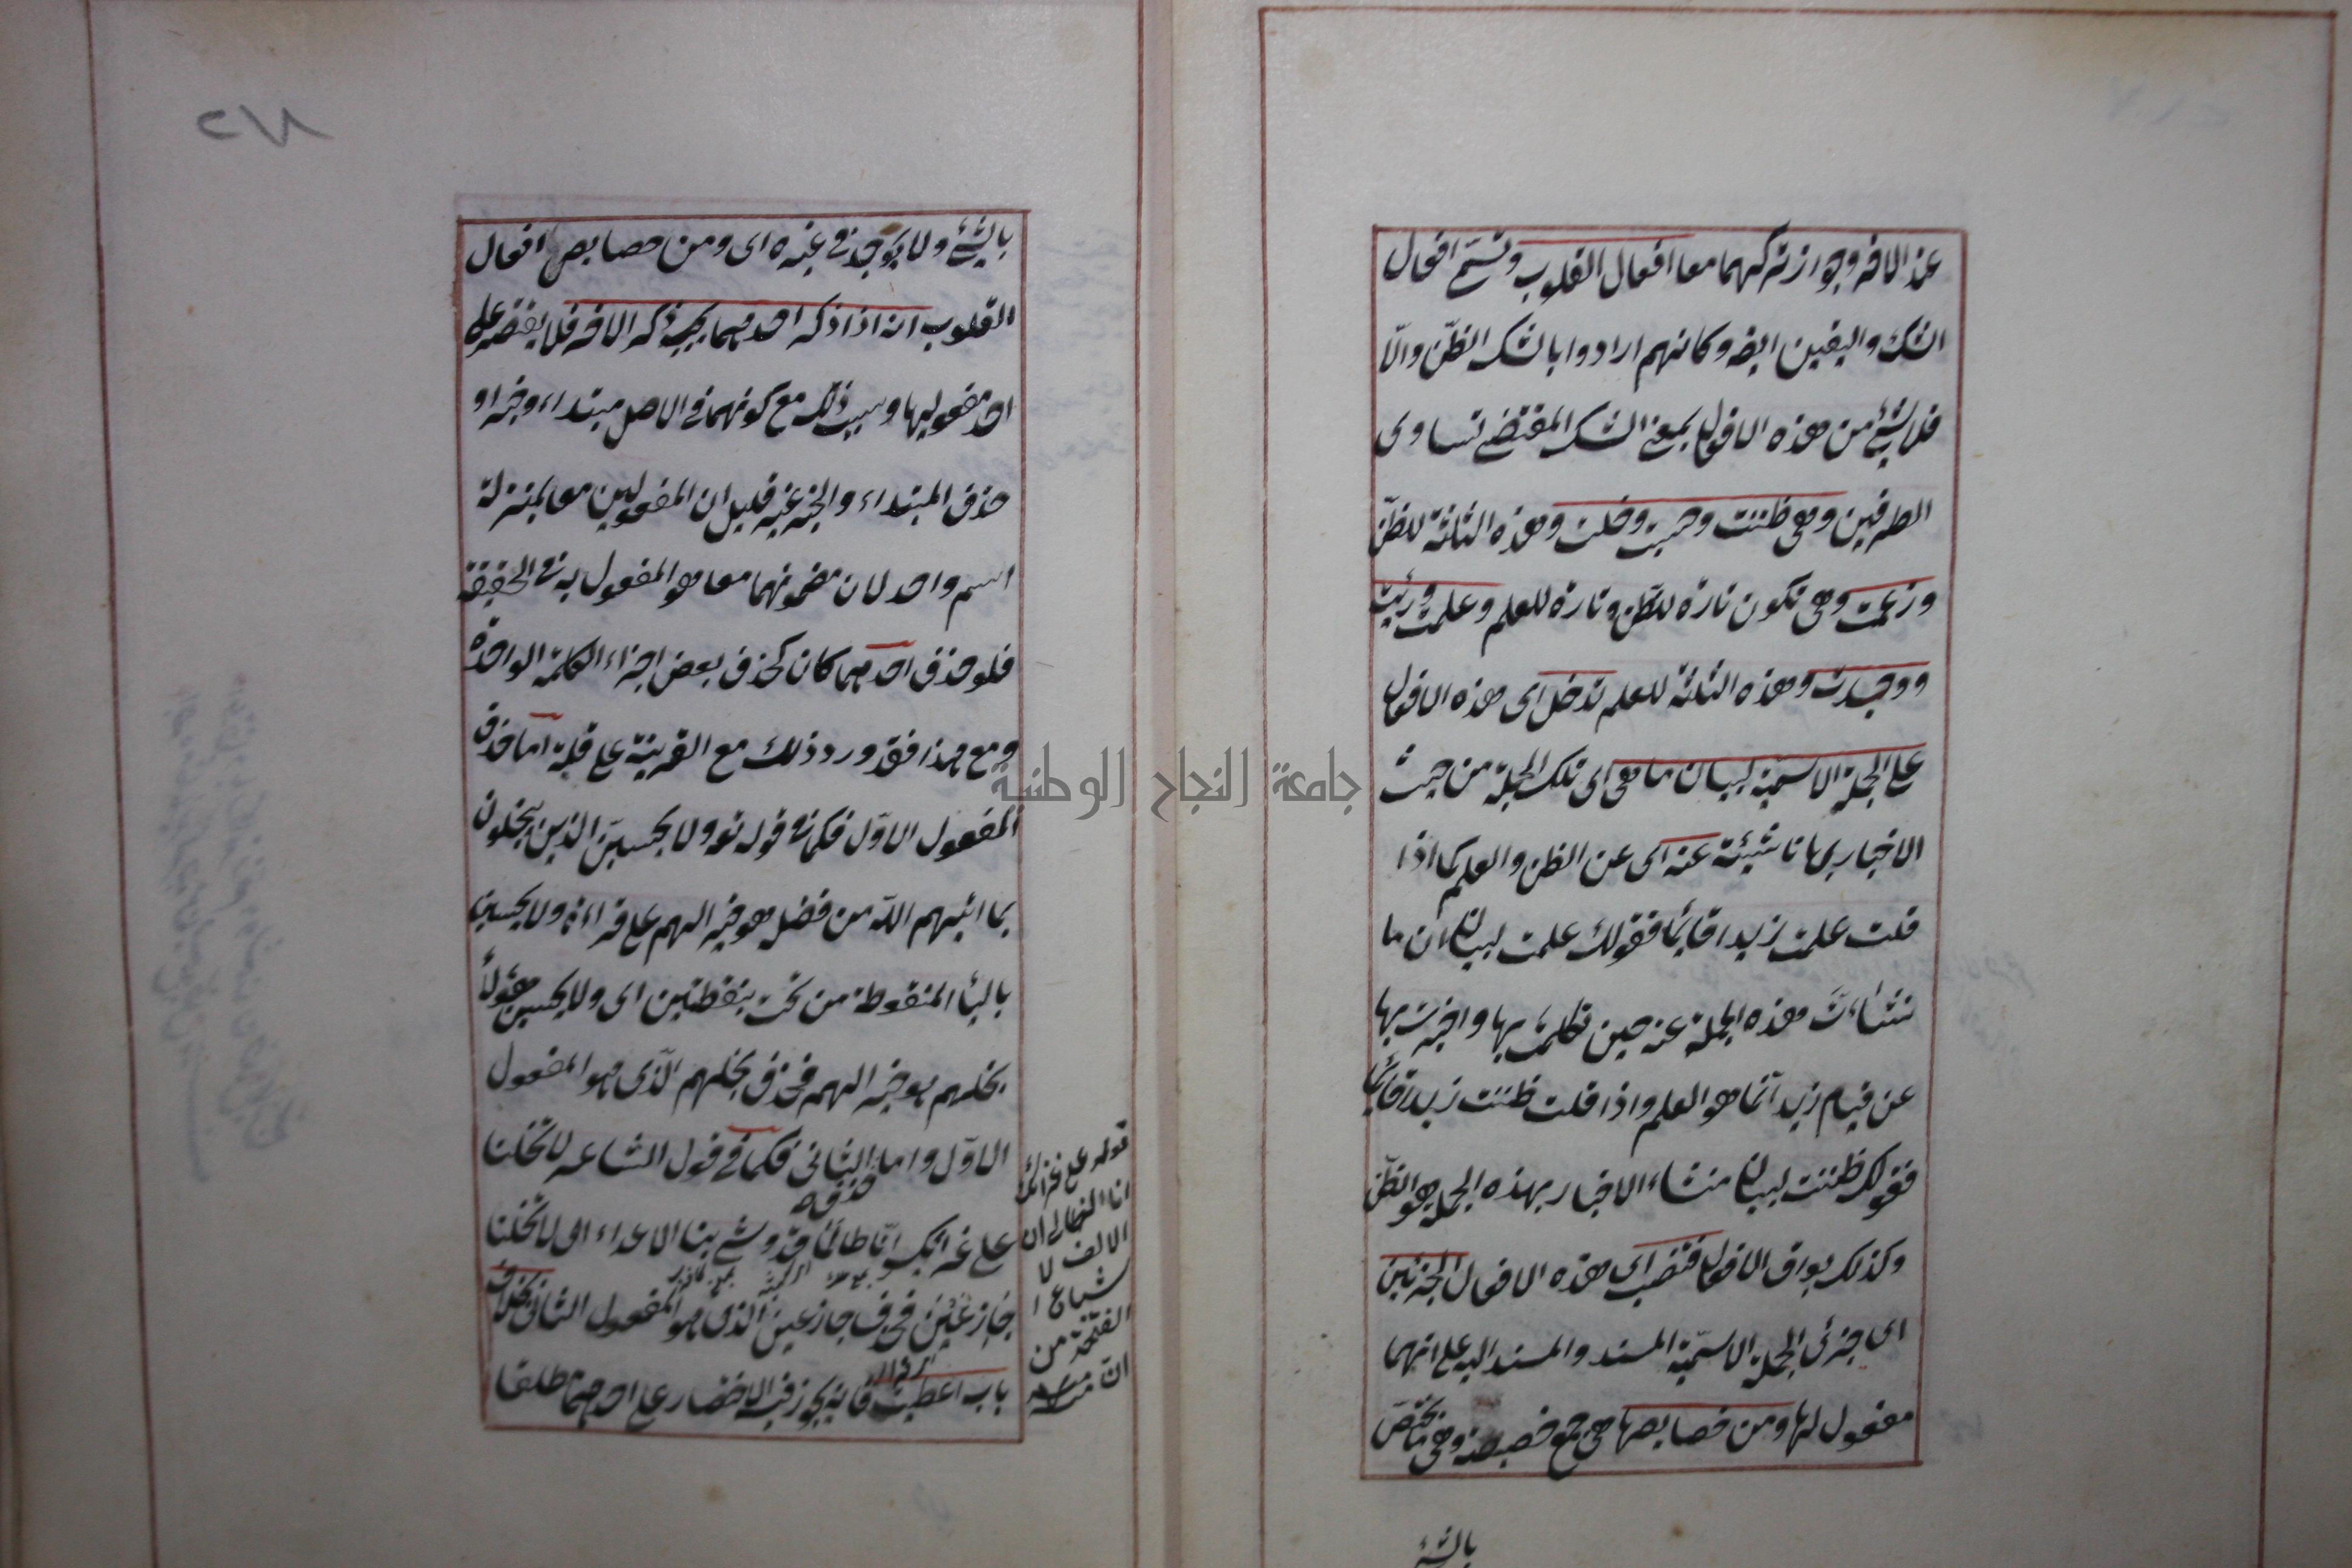 عند الاخر وجواز تركهما معا افعال القلوب وتسمى افعال
الشك واليقين ايضا وكانهم ارادوا بالشك الظن والا
فلا شئ من هذه الافعال بمعنى الشك المقتضى تساوى
الطرفين وهى ظننت وحسبت وخلت وهذه الثلثة للظن
وزعمت وهى تكون تارة للظن وتارة للعلم وعلمت ورئيت
ووجدت وهذه الثلثة للعلم تدخل اى هذه الافعال
على الجملة الاسمية لبيان ما هى اى تلك الجملة من حيث
الاخبار بها ناشيئة عنه اى عن الظن والعلم كما اذا
قلت علمت زيدا قائما فقولك علمت لبيان ان ما
نشاءت هذه الجملة عنه حين تكلمت بها واخبرت بها
عن قيام زيد انما هو العلم واذا قلت ظننت زيدا قائما
فقولك ظننت لبيان منشاء الاخبار بهذه الجملة هو الظن
وكذلك بواقى الافعال فتنصب اى هذه الافعال الجزئين
اى جزئى الجملة الاسمية المسند والمسند اليه على انهما
مفعول لها ومن خصايصها هى جمع خصيصة وهى ما يختص
بالشئ
٢١٨
بالشئ ولا يوجد فى غيره اى ومن خصايص افعال
القلوب انه اذا ذكر احدهما يجب ذكر الاخر فلا يقتصر على
احد مفعوليها وسبب ذلك مع كونهما فى الاصل مبتداء وخبرا و
حذف المبتداء والخبر غير قليل ان المفعولين معا بمنزلة
اسم واحد لان مضمونهما معا هو المفعول به فى الحقيقة
فلو حذف احدهما كان كحذف بعض اجزاء الكلمة الواحدة
ومع هذا فقد ورد ذلك مع القرينة على قلة اما حذف
المفعول الاول فكما فى قوله تع ولا يحسبن الذين يبخلون
بما اتيهم الله من فضله هو خير الهم على قراءة ولا يحسبن
بالياء المنقوطة من تحت بنقطتين اى ولا يحسبن هؤلاء
بخلهم هو خير الهم فحذف بخلهم الذى هو المفعول
الاول واما الثانى فكما فى قول الشاعر لا تخلنا
حذفه
على غراتك انا طالما قد وشى بنا الاعداء اى لا تخلنا
جازعين فحذف جازعين الذى هو المفعول الثانى بخلاف
باب اعطيت فانه يجوز فيه الاقتصار على احدهما مطلقا
قوله على غرائك
انا
الالف لا
شباع
الفتحة من
انّ
جامعة النجاح الوطنية